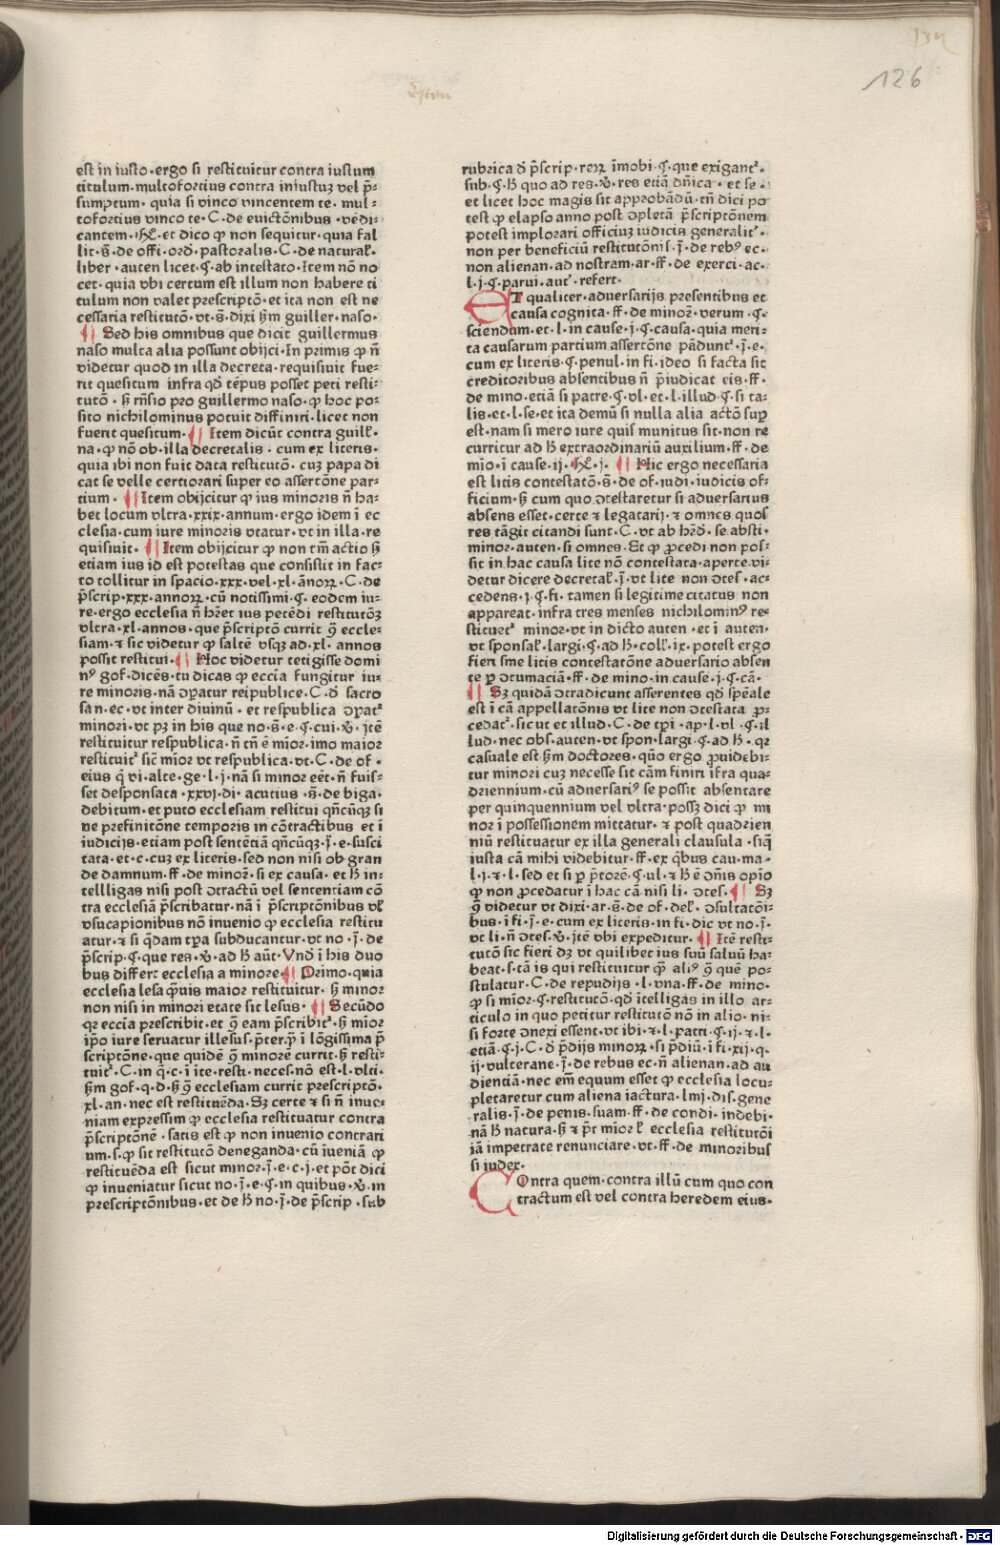 126
est in iusto·ergo si restituitur contra iustum
titulum·multofortius contra iniustuʒ vel p̄-
sumptum· quia si vinco vincentem te· mul-
tofortius vinco te·C·de euictōnibus ·vēdi-
cantem· et dico ꝙ non sequitur·quia fal
lit·s̄·de offi·ord·pastoralis·C·de natural·
liber·auten licet·ab intestato·Item nō no
cet·quia vbi certum est illum non habere ti
tulum non valet prescriptō·et ita non est ne
cessaria restitutō·vt·s̄·dixi ẜm guiller·naso·
¶ Sed his omnibus que dicit guillermus
naso multa alia possunt obijci·In primis ꝙ n̄
videtur quod in illa decreta·requisiuit fue-
rit quesitum infra qd̓ tēpus posset peti resti-
tutō· ẜ rn̄sio pro guillermo naso·ꝙ hoc po-
sito nichilominus potuit diffiniri·licet non
fuerit quesitum·¶ Item dicūt contra guill·
na·ꝙ nō ob·illa decretalis·cum ex literis·
quia ibi non fuit data restitutō·cuʒ papa di
cat se velle certiorari super eo assertōne par-
tium·¶ Item obijcitur ꝙ ius minoris n̄ ha-
bet locum vltra·xxix·annum·ergo idem ī ec
clesia·cum iure minoris vtatur·vt in illa·re
quisiuit·¶ Item obijcitur ꝙ non tm̄ actio ẜ
etiam ius id est potestas que consistit in fac-
to tollitur in spacio·xxx·vel·xl·ānoꝝ·C·de
p̄scrip·xxx·annoꝝ·cū notissimi·eodem iu-
re·ergo ecclesia n̄ hr̄et ius petēdi restitutōʒ
vltra·xl·annos·que p̄scriptō currit ꝯ̄ eccle-
siam·⁊ sic videtur ꝙ saltē vsqʒ ad·xl·annos
possit restitui·¶ Hoc videtur tetigisse domi
nꝰ gof·dicēs·tu dicas ꝙ eccīa fungitur iu-
re minoris·nā ꝯparatur reipublice·C·d̓ sacro
san·ec·vt inter diuinū·et respublica ꝯpatᷣ
minori·vt pʒ in his que no·s̄·e·cui·Itē
restituitur respublica·n̄ tn̄ ē mīor·imo maior
restituitᷣ sic̄ mīor vt respublica·vt·C·de of·
eius q̄ vi·alte·ge·l·j·nā si minor eēt·n̄ fuis-
set desponsata·xxvj·di·acutius·s̄·de biga·
debitum·et puto ecclesiam restitui qn̄cūqʒ si
ne prefinitōne temporis in cōtractibus et ī
iudicijs·etiam post sentētiā qn̄cūqʒ·j̄·e·susci
tata·et·c·cuʒ ex literis·sed non nisi ob gran
de damnum·ff·de minor·si ex causa·et ħ in-
tellligas nisi post ꝯtractū vel sententiam cō
tra ecclesiā p̄scribatur·nā ī p̄scriptōnibus vl
vsucapionibus nō inuenio ꝙ ecclesia restitu
atur·⁊ si q̄dam tp̄a subducantur·vt no·j̄·de
p̄scrip·que res·ad ħ aūt·Vnd̓ ī his duo
bus differt ecclesia a minore·¶ Primo·quia
ecclesia lesa q̄uis maior restituitur·ẜ minor
non nisi in minori etate sit lesus·¶ Secūdo
qꝛ eccīa prescribit·et ꝯ̄ eam p̄scribitᷣ·ẜ mīor
ip̄o iure seruatur illesus·p̄ter·p̄ ī lōgissima p̄
scriptōne·que quidē ꝯ̄ minorē currit·ẜ resti-
tuitᷣ·C·in q̄·c·ī īte·resti·neces·nō est·l·vlti·
ẜm gof·q·d·ẜ ꝯ̄ ecclesiam currit prescriptō·
xl·an·nec est restituēda·Sʒ certe ⁊ si n̄ inue-
niam expressim ꝙ ecclesia restituatur contra
p̄scriptōnē·satis est ꝙ non inuenio contrari
um·s·ꝙ sit restitutō deneganda·cū īueniā ꝙ
restituēda est sicut minor·j̄·e·c·j·et pōt dici
ꝙ inueniatur sicut no·j̄·e·in quibus·in
prescriptōnibus·et de ħ no·j̄·de p̄scrip·sub
rubrica d̓ p̄scrip·reꝝ īmobi·que exigantᷣ·
sub·ħ quo ad res·res etiā dn̄ica·et se·
et licet hoc magis sit approbādū·tn̄ dici po
test ꝙ elapso anno post ꝯpletā p̄scriptōnem
potest implorari officiuʒ iudicis generalitᷣ·
non per beneficiū restitutōnis·j̄·de rebꝰ ec·
non alienan·ad nostram·ar·ff·de exerci·ac·
l·j·parui·autᷣ·refert·
ET qualiter·aduersarijs presentibus et
causa cognita·ff·de minor·verum·
sciendum·et·l·in cause·j·causa·quia meri-
ta causarum partium assertōne pādūtᷣ·j̄·e·
cum ex literis·penul·in fi·ideo si facta sit
creditoribus absentibus n̄ p̄iudicat eis·ff·
de mino·etiā si patre·vl·et·l·illud·si ta-
lis·et·l·se·et ita demū si nulla alia actō sup̄
est·nam si mero iure quis munitus sit·non re
curritur ad ħ extraordinariū auxilium·ff·de
mio·ī cause·ij·¶ Hic ergo necessaria
est litis contestatō·s̄·de of·iudi·iudicis of-
ficium·ẜ cum quo ꝯtestaretur si aduersarius
absens esset·certe ⁊ legatarij·⁊ omnes quos
res tāgit citandi sunt·C·vt ab hr̄d·se absti-
minor·auten·si omnes·Et ꝙ ꝓcedi non pos-
sit in hac causa lite nō contestata·aperte vi-
detur dicere decretal·j̄·vt lite non ꝯtes·ac-
cedens·j·fi·tamen si legitime citatus non
appareat·infra tres menses nichilominꝰ re-
stituetᷣ minor·vt in dicto auten·et ī auten·
vt sponsal·largi·ad ħ·coll·ix·potest ergo
fieri sine litis contestatōne aduersario absen
te ꝑ ꝯtumaciā·ff·de mino·in cause·j·cā·
¶ Sʒ quidā ꝯtradicunt asserentes qd̓ sp̄eale
est ī cā appellatōnis vt lite non ꝯtestata ꝓ-
cedatᷣ·sicut et illud·C·de tp̄i·ap·l·vl·il
lud·nec obs·auten·vt spon·largi·ad ħ·qꝛ
casuale est ẜm doctores·quō ergo ꝓuidebi-
tur minori cuʒ necesse sit cām finiri īfra qua-
driennium·cū aduersariꝰ se possit absentare
per quinquennium vel vltra·possʒ dici ꝙ mi
nor ī possessionem mittatur·⁊ post quadrien
niū restituatur ex illa generali clausula·siq̄
iusta cā mihi videbitur·ff·ex q̄bus cau·ma-
l·j·⁊·l·sed et si ꝑ p̄torē·ul·⁊ ħ ē ōnis opīo
ꝙ non ꝓcedatur ī hac cā nisi li·ꝯtes·¶ Sʒ
ꝯ̄ videtur vt dixi·ar·s̄·de of·del·ꝯsultatōi-
bus·ī fi·j̄·e·cum ex literis·in fi·dic vt no·j̄·
vt li·n̄ ꝯtes·Itē vbi expeditur·¶ Itē resti-
tutō sic fieri dʒ vt quilibet ius suū saluū ha-
beat·s·tā is qui restituitur q̄ aliꝰ ꝯ̄ quē po-
stulatur·C·de repudijs·l·vna·ff·de mino·
ꝙ si mīor·restitutō·qd̓ ītelligas in illo ar-
ticulo in quo petitur restitutō nō in alio·ni-
si forte ꝯnexi essent·vt ibi·⁊·l·patri·ij·⁊·l·
etiā·j·C·d̓ p̄dijs minoꝝ·si p̄diū·ī fi·xij·q·
ij·vulterane·j̄·de rebus ec·n̄ alienan·ad au
dientiā·nec em̄ equum esset ꝙ ecclesia locu-
pletaretur cum aliena iactura·lvij·dis·gene
ralis·j̄·de penis·suam·ff·de condi·indebi·
nā ħ natura·ẜ ⁊ p̄t mīor l ecclesia restitutōi
iā impetrate renunciare·vt·ff·de minoribus
si iudex·
COntra quem·contra illū cum quo con
tractum est vel contra heredem eius·
Digitalisierung gefördert durch die Deutsche Forschungsgemeinschaft - DFG